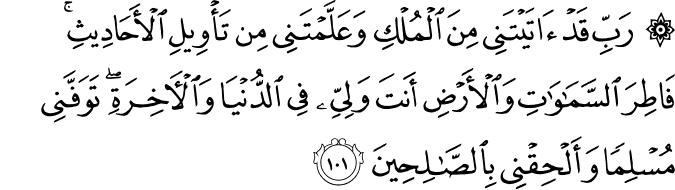 ۞ رَبِّ قَدْ ءَاتَيْتَنِى مِنَ ٱلْمُلْكِ وَعَلَّمْتَنِى مِن تَأْوِيلِ ٱلْأَحَادِيثِ ۚ
فَاطِرَ ٱلسَّمَـٰوَٰتِ وَٱلْأَرْضِ أَنتَ وَلِىِّۦ فِى ٱلدُّنْيَا وَٱلْـَٔاخِرَةِ ۖ تَوَفَّنِى
مُسْلِمًا وَأَلْحِقْنِى بِٱلصَّـٰلِحِينَ ١٠١